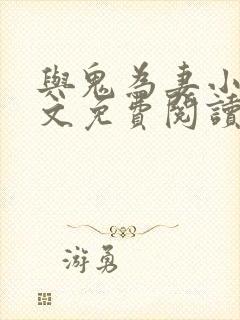 與鬼為妻小
文免費閱讀
游勇